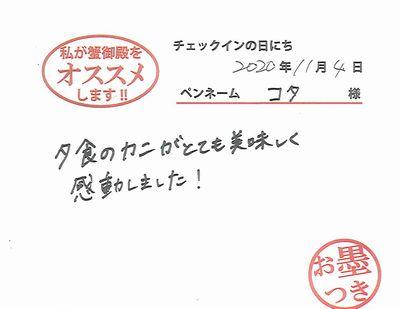 私が蟹御殿を
オススメ
します!!
チェックインの日にち
2020年11月4日
ペンネーム コタ 様
夕食のカニがとても美味しく
感動しました!
お墨
つき